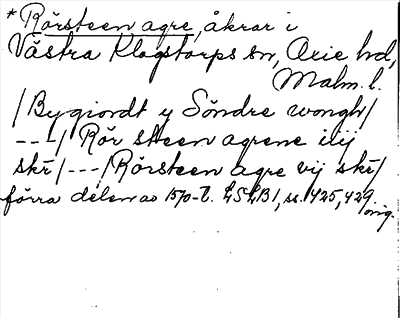 * Rörsteen agre, åkrar i
Västra Klagstorps sn, Oxie hd,
Malm. l.
/Bygiordt y Söndre wongh/
---/ Rör steen agrene iiij
skr/---/Rörsteen agre vij skr/
förra delen av 1570-t. LSLB1, ss. 425, 429
orig.